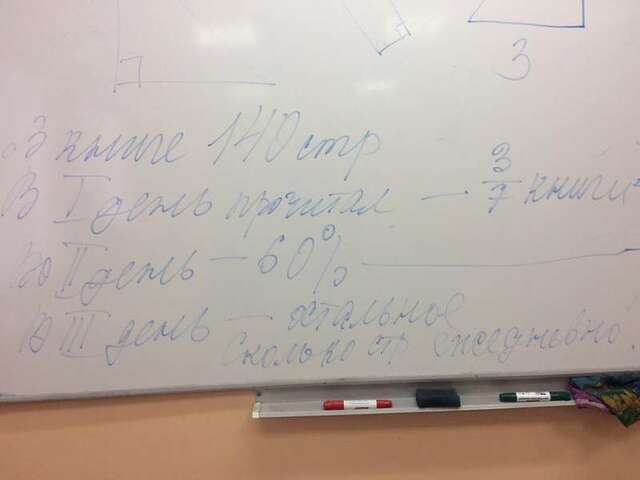 3
В книге 140 стр
В I день прочитал — 3/7 книги
Во II день — 60%
В III день — остальное
Сколько стр ежедневно.